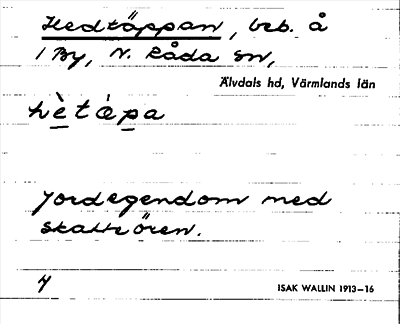 Hedtäppan, beb. å
1 By, N. Råda sn,
Älvdals hd, Värmlands län
hètápa
Jordegendom med
skatteören.
ISAK WALLIN 1913–16